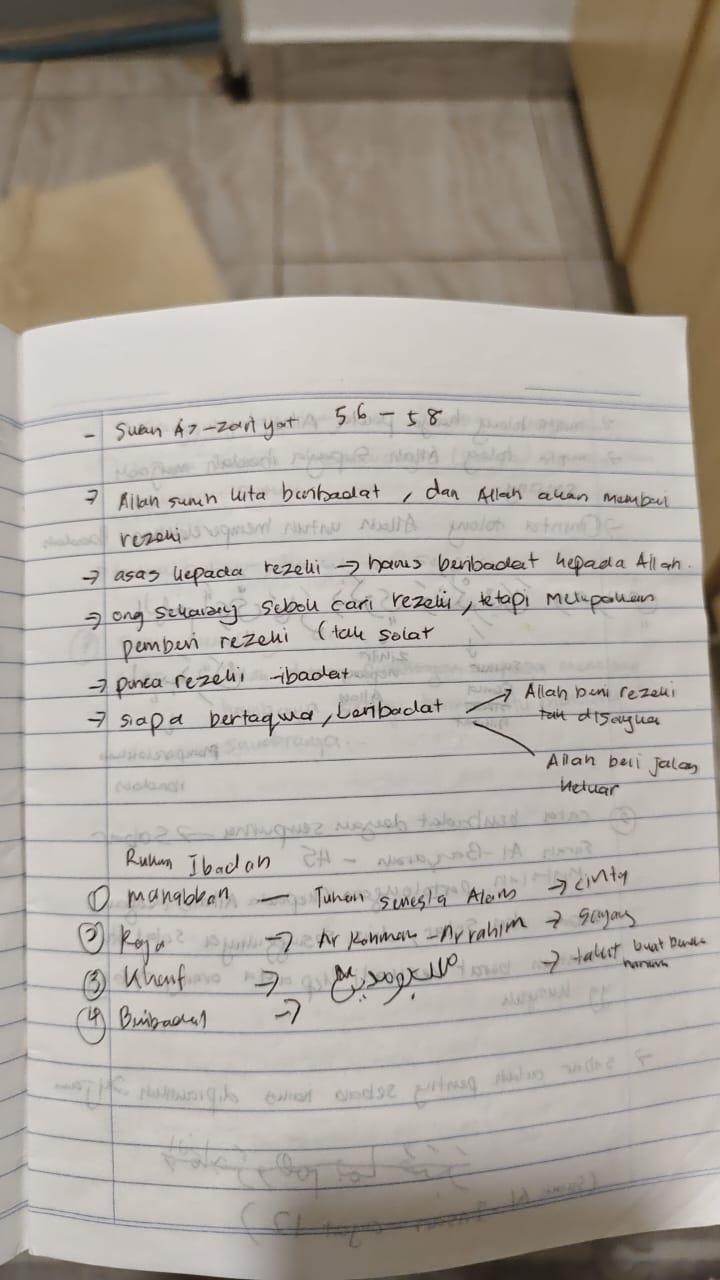 - Surah Az-zariyat 56 - 58
→ Allah suruh kita beribadat, dan Allah akan memberi
rezeki
→ asas kepada rezeki → harus beribadat kepada Allah.
→ org sekarang sebok cari rezeki, tetapi melupakan
pemberi rezeki (tak solat
→ punca rezeki - ibadat
→ siapa bertaqwa, beribadat → Allah beri rezeki
tak disangka
Allah beri jalan
keluar
Rukun Ibadah
① Mahabbah — Tuhan Alam → cinta
② Roja → Ar Rohman - Ar rahim → Sayang
③ Khauf → → takut buat benda
haram
④ Beribadat →